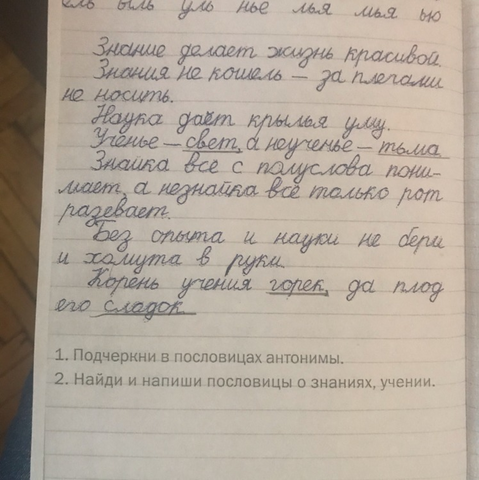 ель ыль уль нье лья мья ью
Знание делает жизнь красивой.
Знания не кошель — за плечами
не носить.
Наука даёт крылья уму.
Ученье — свет, а неученье — тьма.
Знайка всё с полуслова пони-
мает, а незнайка всё только рот
разевает.
Без опыта и науки не бери
и хомута в руки.
Корень учения горек, да плод
его сладок.
1. Подчеркни в пословицах антонимы.
2. Найди и напиши пословицы о знаниях, учении.